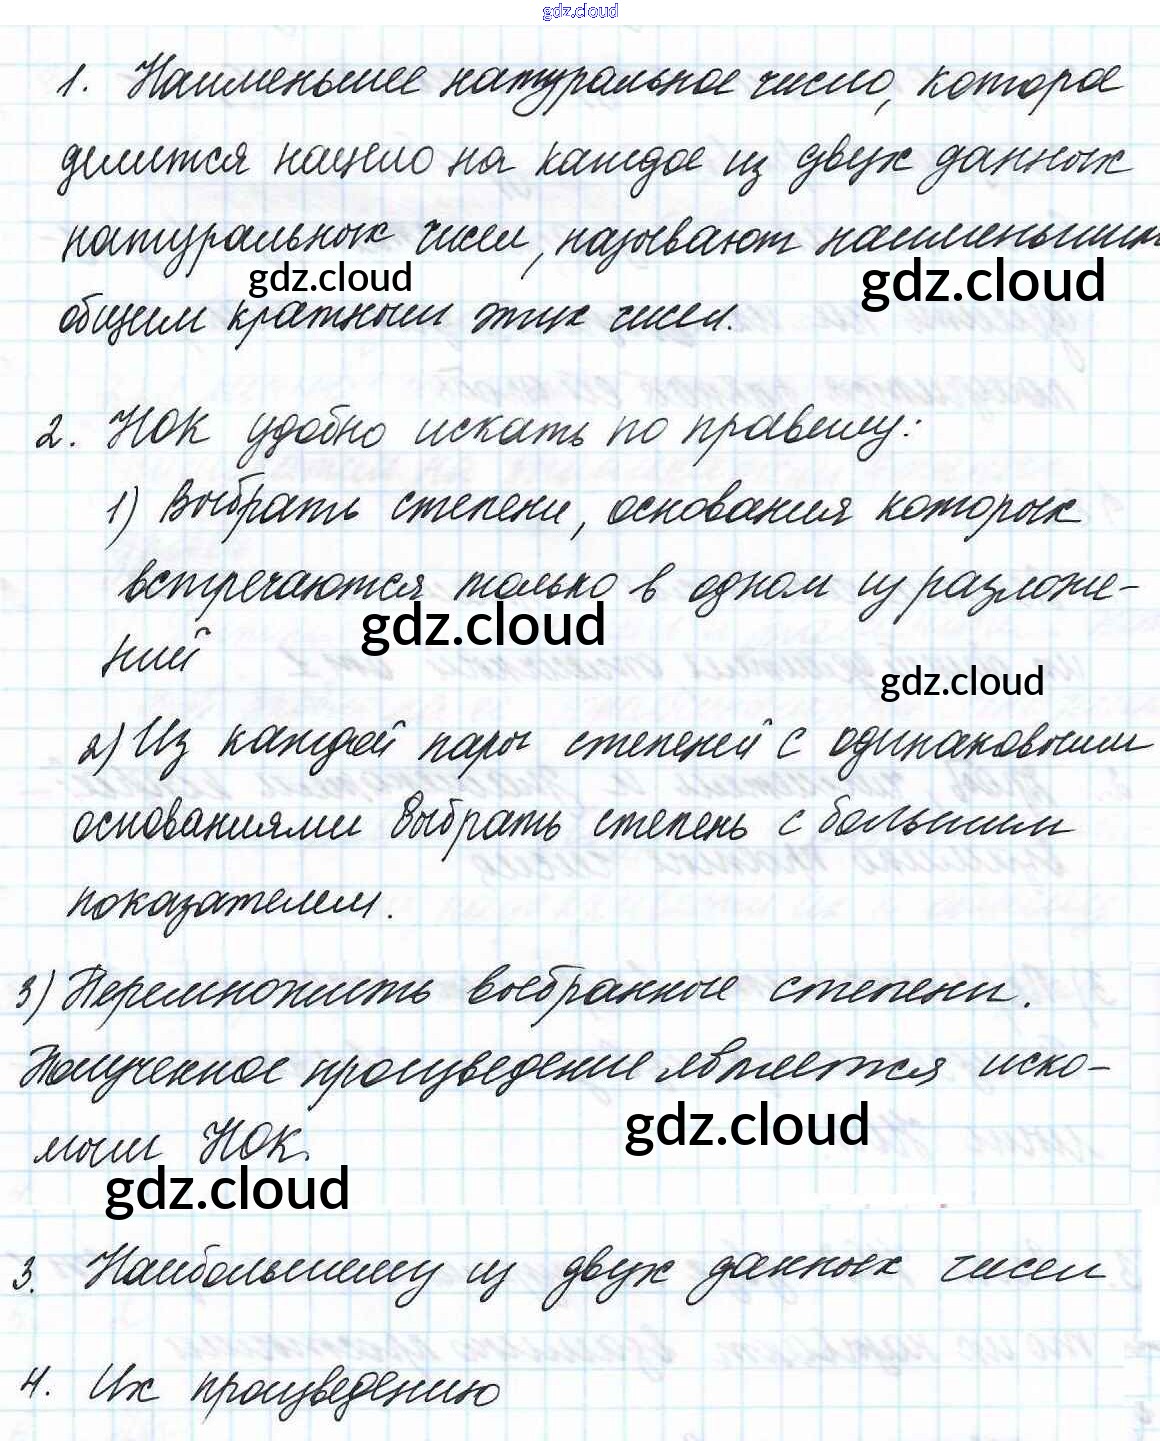 gdz.cloud
1. Наименьшее натуральное число, которое
делится нацело на каждое из двух данных
натуральных чисел, называют наименьшим
gdz.cloud gdz.cloud
общим кратным этих чисел.
2. НОК удобно искать по правилу:
1) Выбрать степени, основания которых
встречаются только в одном из разложе-
gdz.cloud
ний
gdz.cloud
2) Из каждой пары степеней с одинаковыми
основаниями выбрать степень с большим
показателем.
3) Перемножить выбранные степени.
Полученное произведение является иско-
gdz.cloud
мым НОК.
gdz.cloud
3. Наибольшему из двух данных чисел
4. Их произведению